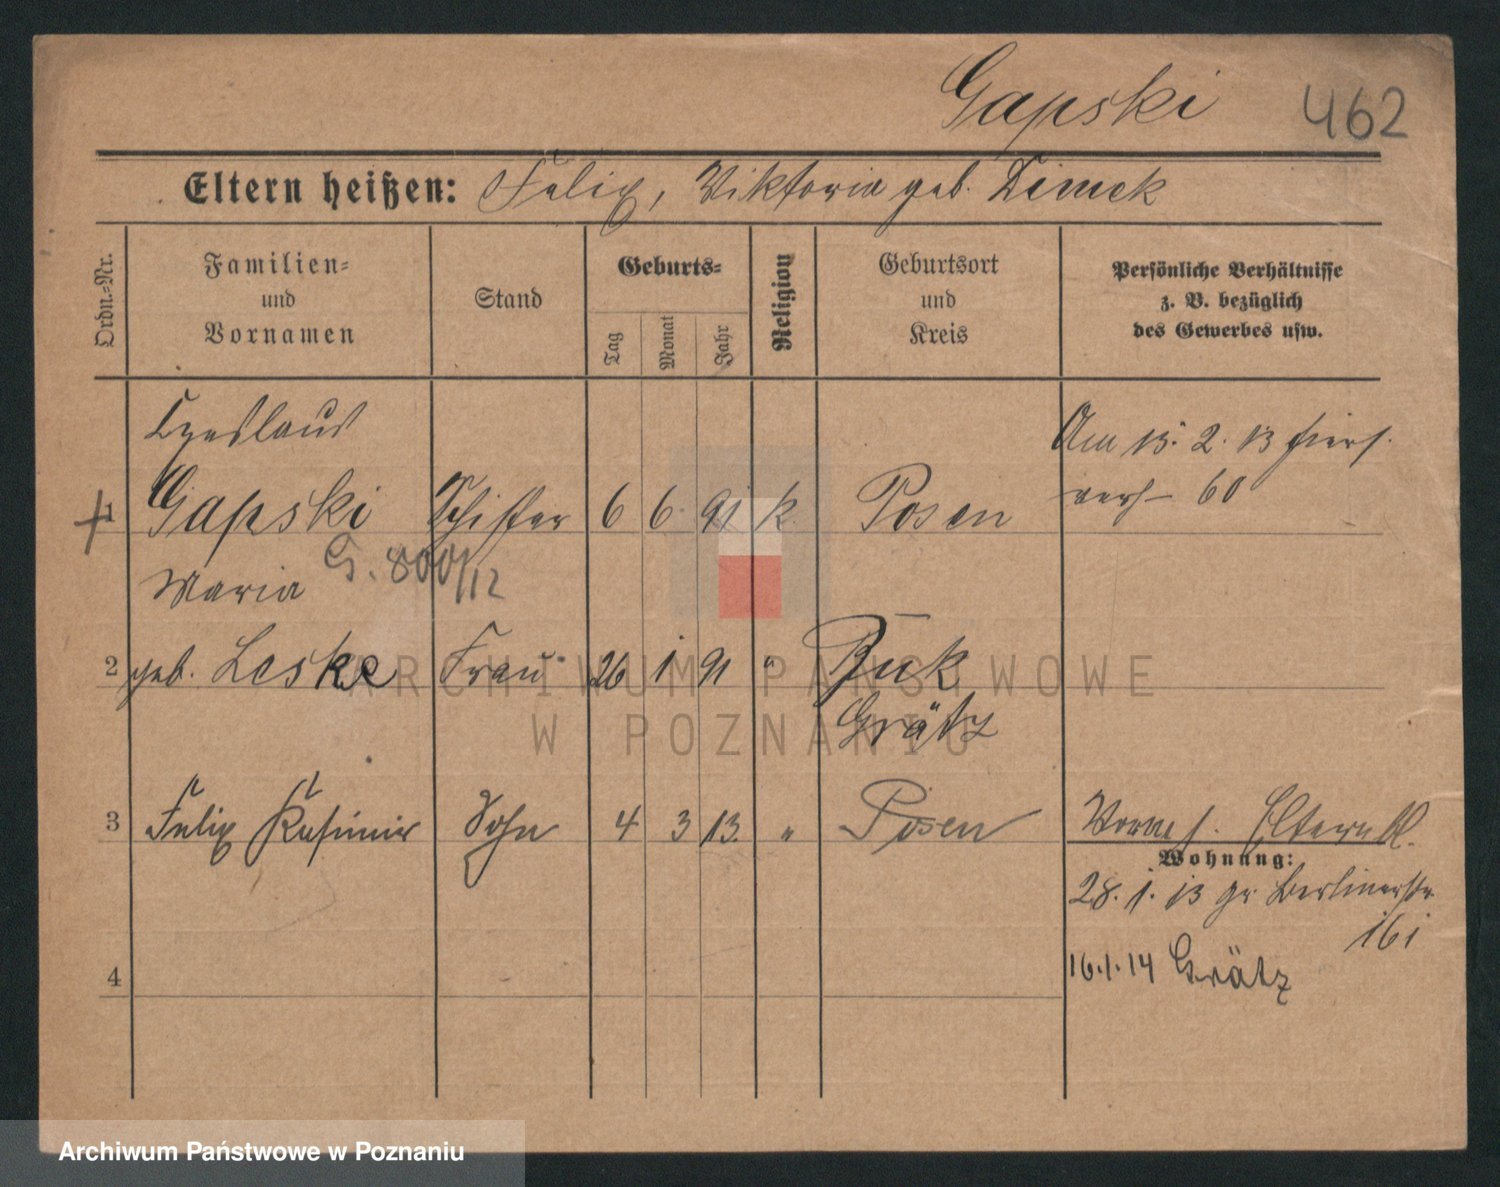 Gapski 462
Eltern heißen: Felix, Viktoria geb. Zimek
Ordn.-Nr.
Familien-
und
Vornamen
Stand
Geburts-
Tag
Monat
Jahr
Religion
Geburtsort
und
Kreis
Persönliche Verhältnisse
z. B. bezüglich
des Gewerbes usw.
Czeslaus
Am 15. 2. 13 hiers.
1 Gapski 6 6. 91 k. Posen
verh 60
G. 800/12
Maria
2 geb. Leske Frau 26 1 91 " Buk
Grätz
3 Felix Kasimir Sohn 4 3 13. " Posen
Eltern
Wohnung:
28. 1. 13 gr. Berlinerstr.
161
16.1.14 Grätz
4
ARCHIWUM PAŃSTWOWE
W POZNANIU
Archiwum Państwowe w Poznaniu